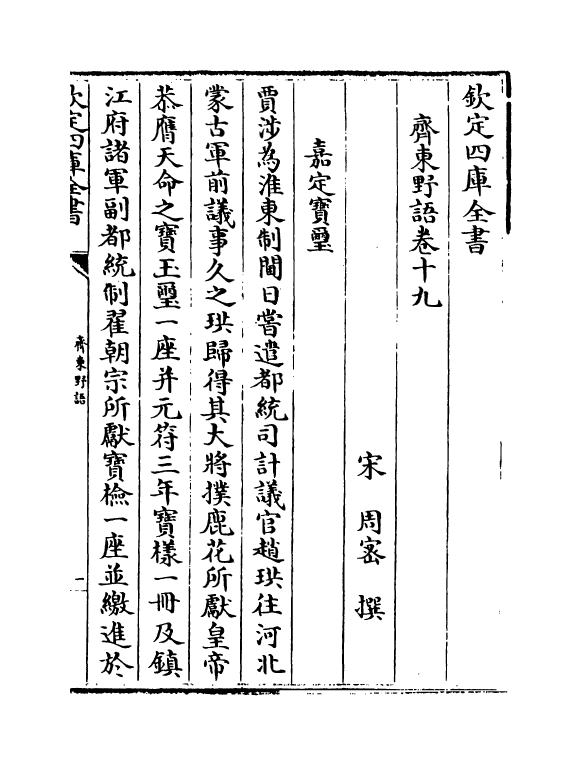 欽定四庫全書
齊東野語卷十九
宋 周密 撰
嘉定寶璽
賈涉為淮東制閫日嘗遣都統司計議官趙珙往河北
蒙古軍前議事久之珙歸得其大將撲鹿花所獻皇帝
恭膺天命之寶玉璽一座并元符三年寶樣一冊及鎮
江府諸軍副都統制翟朝宗所獻寶檢一座並繳進於
欽定四庫全書
齊東野語
一